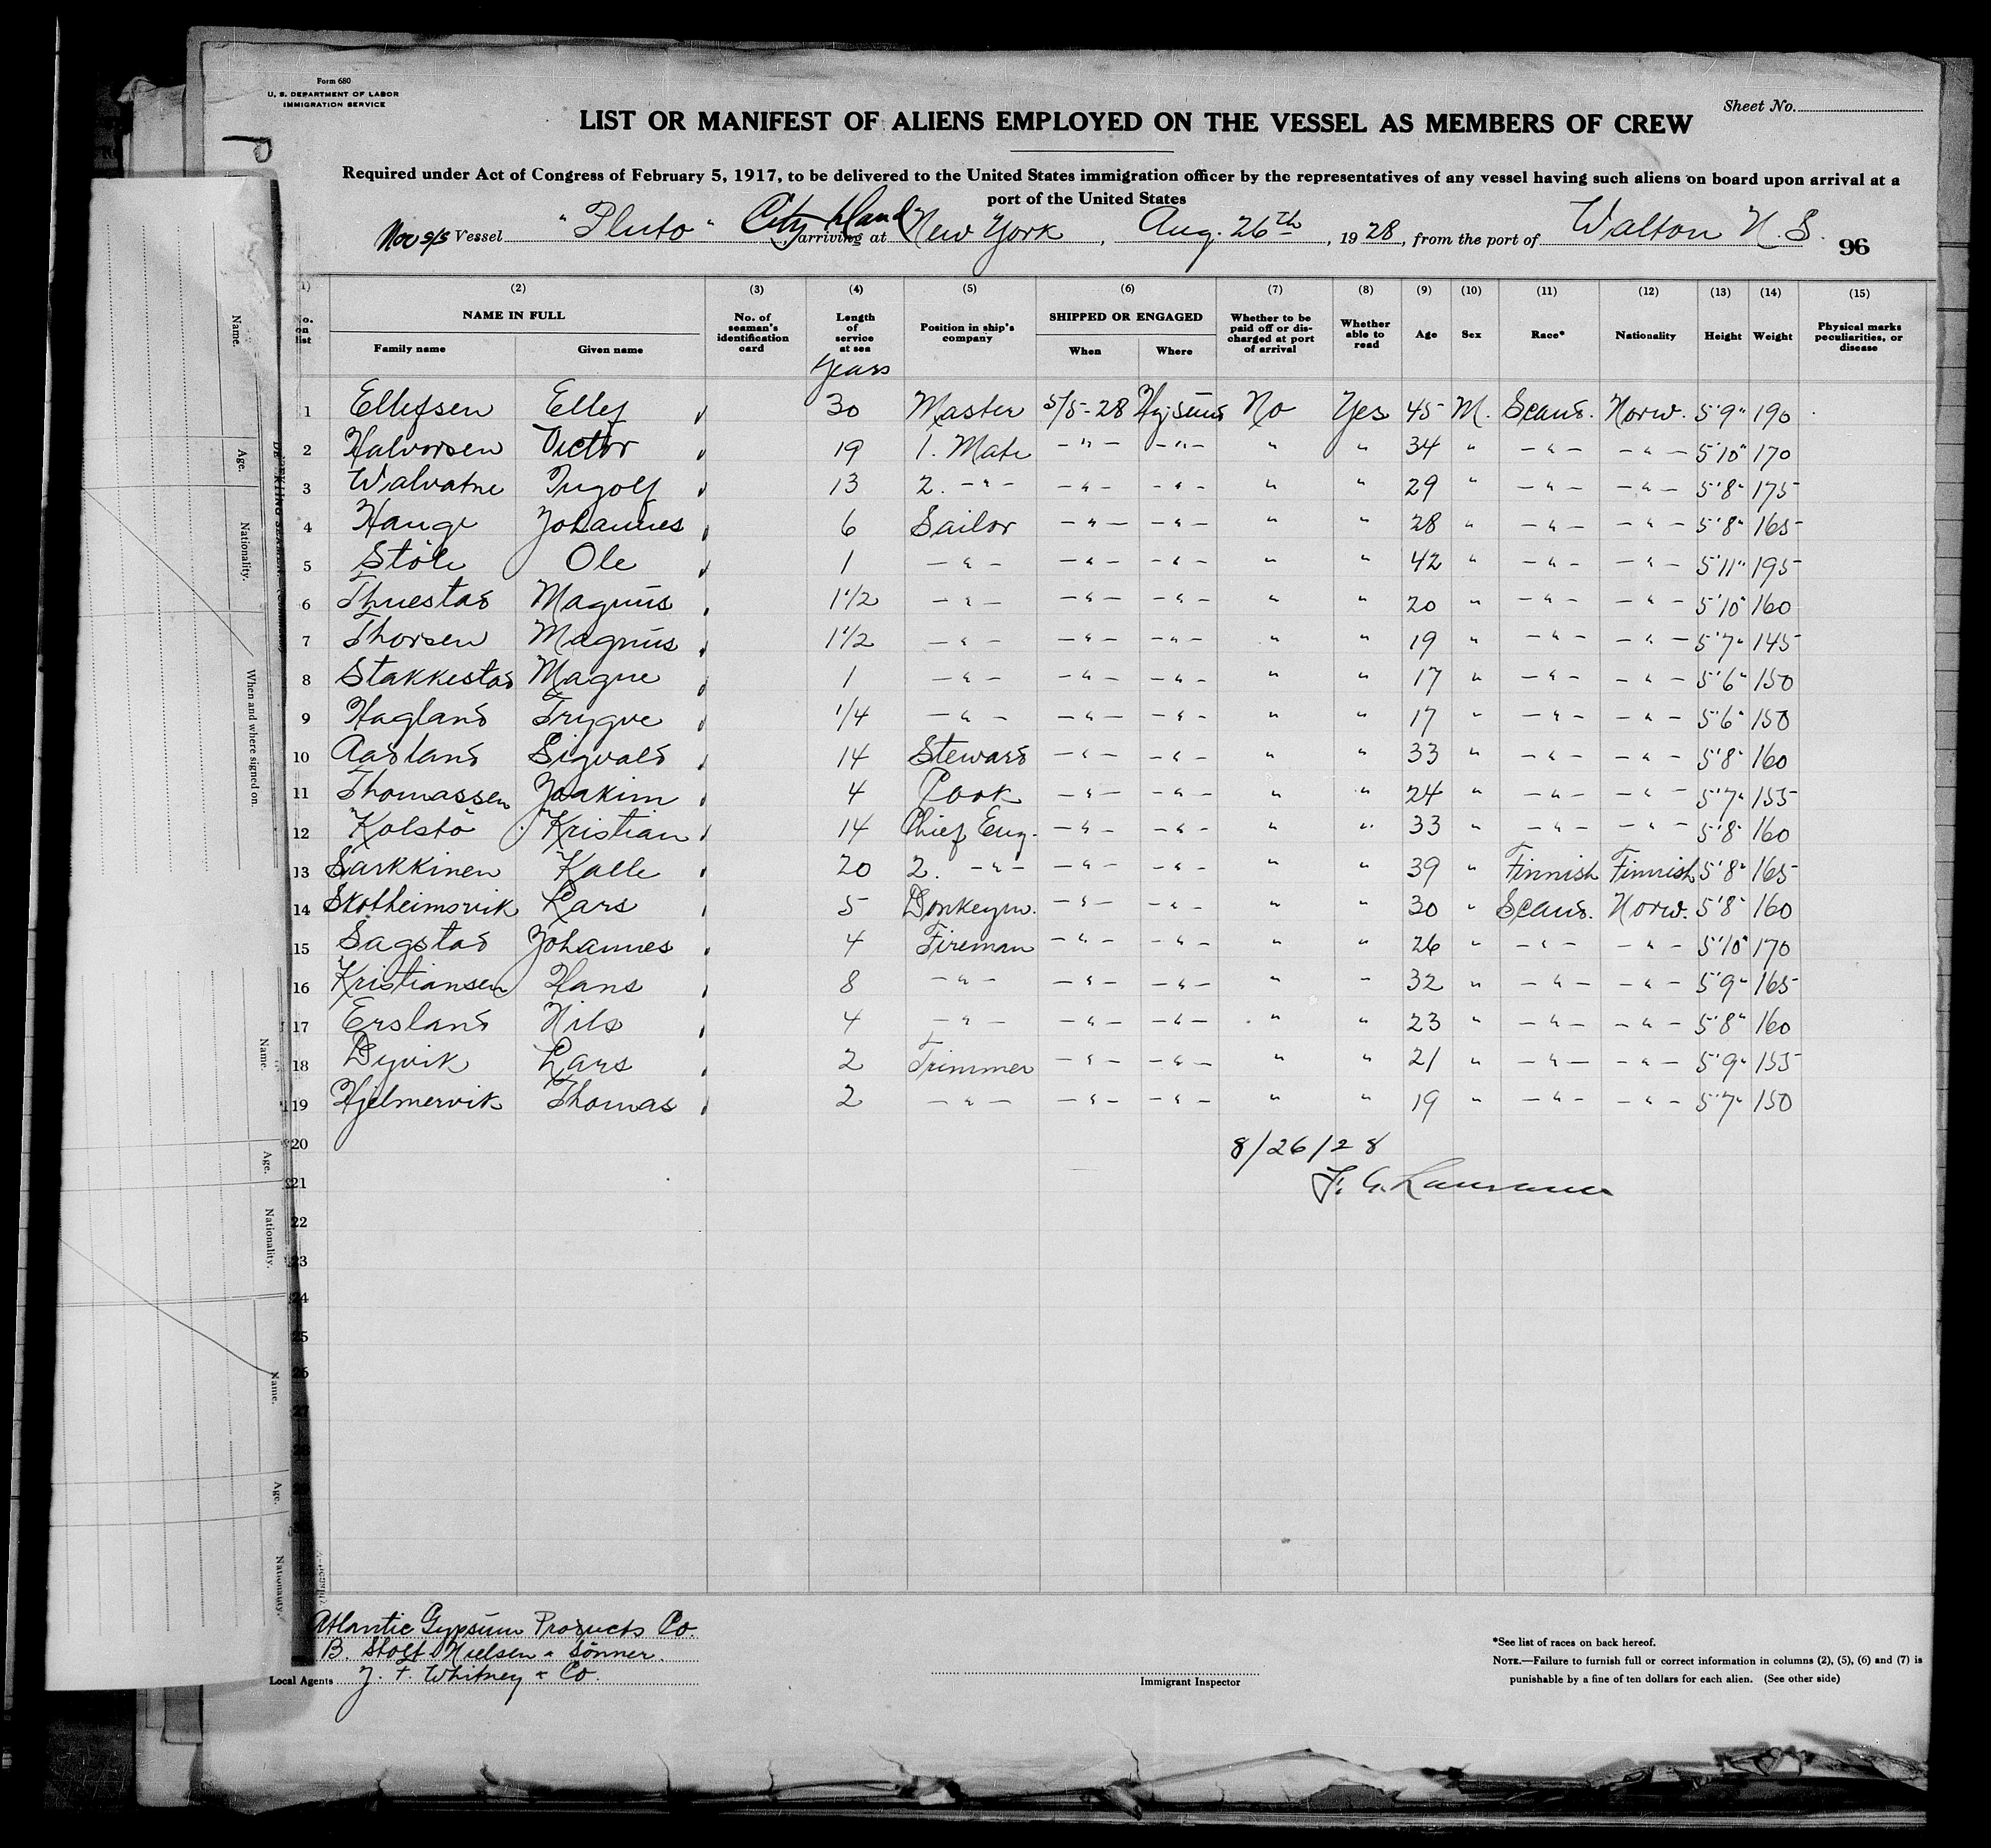 Form 680
U. S. DEPARTMENT OF LABOR
IMMIGRATION SERVICE
Sheet No.
LIST OR MANIFEST OF ALIENS EMPLOYED ON THE VESSEL AS MEMBERS OF CREW
Required under Act of Congress of February 5, 1917, to be delivered to the United States immigration officer by the representatives of any vessel having such aliens on board upon arrival at a
port of the United States
Nor s/s Vessel "Pluto" City Island arriving at New York, Aug. 26th, 1928, from the port of Walton N. S. 96
(1) (2) (3) (4) (5) (6) (7) (8) (9) (10) (11) (12) (13) (14) (15)
No. on list NAME IN FULL Family name Given name No. of seaman's identification card Length of service at sea Years Position in ship's company SHIPPED OR ENGAGED When Where Whether to be paid off or discharged at port of arrival Whether able to read Age Sex Race* Nationality Height Weight Physical marks peculiarities, or disease
1 Ellefsen Ellef 30 Master 5/5-28 No Yes 45 M. Scand. Norw. 5'9" 190
2 Halvorsen Victor 19 1. Mate -"- -"- " " 34 " -"- -"- 5'10" 170
3 Walvatne Ingolf 13 2. -"- -"- -"- " " 29 " -"- -"- 5'8" 175
4 Hauge Johannes 6 Sailor -"- -"- " " 28 " -"- -"- 5'8" 165
5 Støle Ole 1 -"- -"- -"- " " 42 " -"- -"- 5'11" 195
6 Thuestad Magnus 1 1/2 -"- -"- -"- " " 20 " -"- -"- 5'10" 160
7 Thorsen Magnus 1 1/2 -"- -"- -"- " " 19 " -"- -"- 5'7" 145
8 Stakkestad Magne 1 -"- -"- -"- " " 17 " -"- -"- 5'6" 150
9 Hagland Trygve 1/4 -"- -"- -"- " " 17 " -"- -"- 5'6" 150
10 Aasland Sigvald 14 Steward -"- -"- " " 33 " -"- -"- 5'8" 160
11 Thomassen Joakim 4 Cook -"- -"- " " 24 " -"- -"- 5'7" 155
12 Kolstö Kristian 14 Chief Eng. -"- -"- " " 33 " -"- -"- 5'8" 160
13 Sarkkinen Kalle 20 2. -"- -"- -"- " " 39 " Finnish Finnish 5'8" 165
14 Skotheimsvik Lars 5 Donkeym. -"- -"- " " 30 " Scand. Norw. 5'8" 160
15 Sagstad Johannes 4 Fireman -"- -"- " " 26 " -"- -"- 5'10" 170
16 Kristiansen Hans 8 -"- -"- -"- " " 32 " -"- -"- 5'9" 165
17 Ersland Nils 4 -"- -"- -"- " " 23 " -"- -"- 5'8" 160
18 Dyvik Lars 2 Trimmer -"- -"- " " 21 " -"- -"- 5'9" 155
19 Hjelmervik Thomas 2 -"- -"- -"- " " 19 " -"- -"- 5'7" 150
20 8/26/28
21 F. G.
22
23
24
25
26
27
Atlantic Gypsum Products Co.
B. Stolt Nielsen & Sönner.
Local Agents J. F. Whitney & Co.
Immigrant Inspector
*See list of races on back hereof.
NOTE.—Failure to furnish full or correct information in columns (2), (5), (6) and (7) is
punishable by a fine of ten dollars for each alien. (See other side)
Name.
Age.
Nationality.
When and where signed on.
Name.
Age.
Nationality.
Name.
Age.
Nationality.